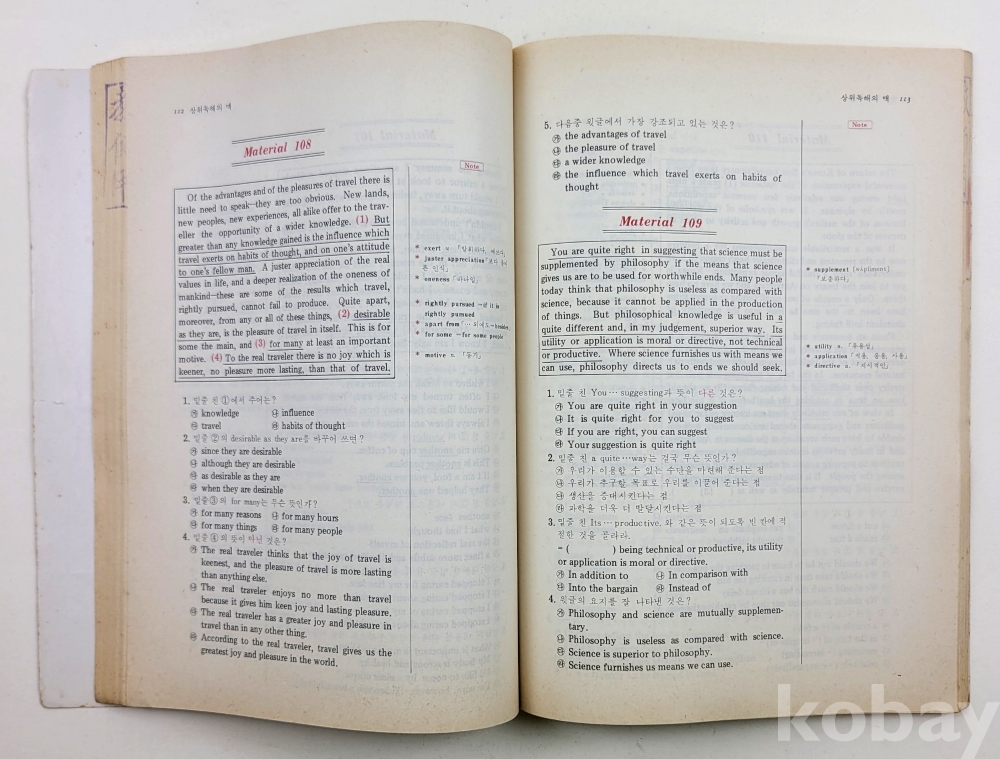 112 상위독해의 맥
Material 108
Note
Of the advantages and of the pleasures of travel there is
little need to speak—they are too obvious. New lands,
new peoples, new experiences, all alike offer to the trav-
eller the opportunity of a wider knowledge. (1) But
greater than any knowledge gained is the influence which
travel exerts on habits of thought, and on one's attitude
to one's fellow man. A juster appreciation of the real
values in life, and a deeper realization of the oneness of
mankind—these are some of the results which travel,
rightly pursued, cannot fail to produce. Quite apart,
moreover, from any or all of these things, (2) desirable
as they are, is the pleasure of travel in itself. This is for
some the main, and (3) for many at least an important
motive. (4) To the real traveler there is no joy which is
keener, no pleasure more lasting, than that of travel.
* exert v.
* juster appreciation
* oneness 「하나임」
* rightly pursued —if it is
rightly pursued
* apart from
* for some —for some people
* motive n. 「동기」
1. 밑줄 친 ①에서 주어는?
㉮ knowledge ㉯ influence
㉰ travel ㉱ habits of thought
2. 밑줄 ②의 desirable as they are를 바꾸어 쓰면?
㉮ since they are desirable
㉯ although they are desirable
㉰ as desirable as they are
㉱ when they are desirable
3. 밑줄③의 for many는 무슨 뜻인가?
㉮ for many reasons ㉯ for many hours
㉰ for many things ㉱ for many people
4. 밑줄④의 뜻이 아닌 것은?
㉮ The real traveler thinks that the joy of travel is
keenest, and the pleasure of travel is more lasting
than anything else.
㉯ The real traveler enjoys no more than travel
because it gives him keen joy and lasting pleasure.
㉰ The real traveler has a greater joy and pleasure in
travel than in any other thing.
㉱ According to the real traveler, travel gives us the
greatest joy and pleasure in the world.
상위독해의 맥 113
5. 다음중 윗글에서 가장 강조되고 있는 것은?
㉮ the advantages of travel
㉯ the pleasure of travel
㉰ a wider knowledge
㉱ the influence which travel exerts on habits of
thought
Note
Material 109
You are quite right in suggesting that science must be
supplemented by philosophy if the means that science
gives us are to be used for worthwhile ends. Many people
today think that philosophy is useless as compared with
science, because it cannot be applied in the production
of things. But philosophical knowledge is useful in a
quite different and, in my judgement, superior way. Its
utility or application is moral or directive, not technical
or productive. Where science furnishes us with means we
can use, philosophy directs us to ends we should seek.
* supplement [sʌ́pliment]
「보충하다」
* utility n. 「유용성」
* application 「적용, 응용, 사용」
* directive a. 「지시적인」
1. 밑줄 친 You … suggesting과 뜻이 다른 것은?
㉮ You are quite right in your suggestion
㉯ It is quite right for you to suggest
㉰ If you are right, you can suggest
㉱ Your suggestion is quite right
2. 밑줄 친 a quite …way는 결국 무슨 뜻인가?
㉮ 우리가 이용할 수 있는 수단을 마련해 준다는 점
㉯ 우리가 추구할 목표로 우리를 이끌어 준다는 점
㉰ 생산을 증대시킨다는 점
㉱ 과학을 더욱 더 발달시킨다는 점
3. 밑줄 친 Its … productive. 와 같은 뜻이 되도록 빈 칸에 적
절한 것을 골라라.
= ( ) being technical or productive, its utility
or application is moral or directive.
㉮ In addition to ㉯ In comparison with
㉰ Into the bargain ㉱ Instead of
4. 윗글의 요지를 잘 나타낸 것은?
㉮ Philosophy and science are mutually supplemen-
tary.
㉯ Philosophy is useless as compared with science.
㉰ Science is superior to philosophy.
㉱ Science furnishes us means we can use.
kobay